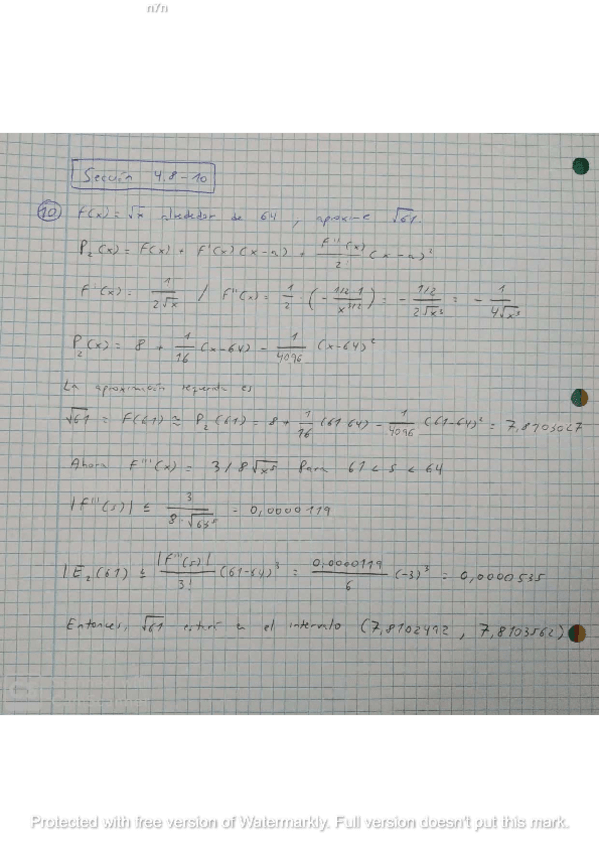 n7n
Sección 4.8-10
10 F(x) = √x alrededor de 64, aproxime √61.
P₂(x) = F(x) + F'(x)(x-a) + F''(x)/2! (x-a)²
F'(x) = 1/(2√x) / F''(x) = 1/2 · (- 1/2·1/x^(3/2)) = - (1/2)/(2√x³) = - 1/(4√x³)
P₂(x) = 8 + 1/16 (x-64) - 1/4096 (x-64)²
La aproximación requerida es
√61 = F(61) ≅ P₂(61) = 8 + 1/16 (61-64) - 1/4096 (61-64)² = 7,8103027
Ahora F'''(x) = 3/8√x⁵ Para 61 < s < 64
|F'''(s)| ≤ 3/(8·√) = 0,0000119
|E₂(61) ≤ |F'''(s)|/3! (61-64)³ = 0,0000119/6 (-3)³ = 0,0000535
Entonces, √61 en el intervalo (7,8102492, 7,8103562)
Protected with free version of Watermarkly. Full version doesn't put this mark.